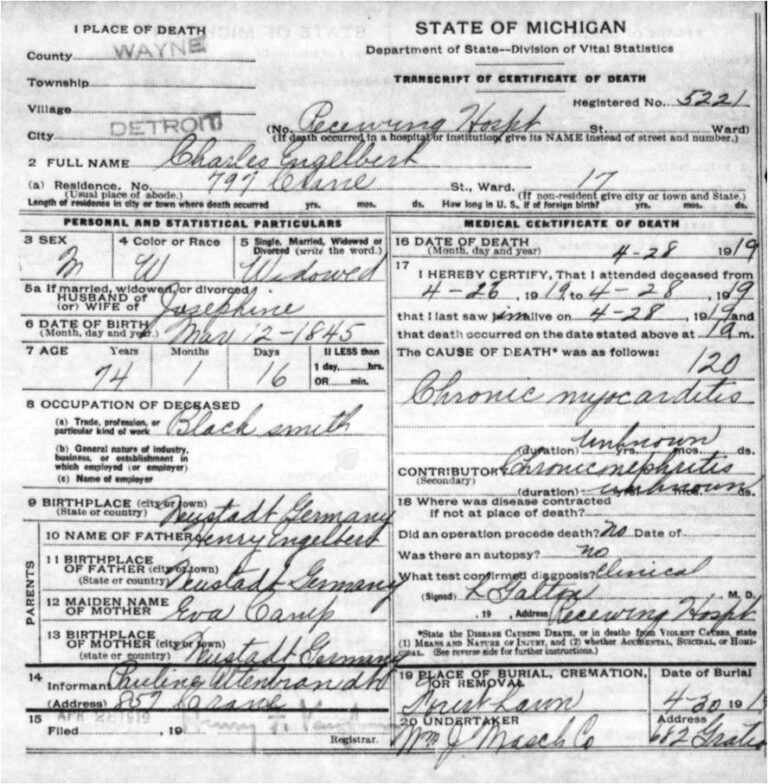 1 PLACE OF DEATH
County WAYNE
Township
Village
City DETROIT
STATE OF MICHIGAN
Department of State—Division of Vital Statistics
TRANSCRIPT OF CERTIFICATE OF DEATH
Registered No. 5221
(No. Receiving Hospt St. Ward)
(If death occurred in a hospital or institution, give its NAME instead of street and number.)
2 FULL NAME Charles Engelbert
(a) Residence. No. 797 Crane St., Ward. 17
(Usual place of abode.) (If non-resident give city or town and State.)
Length of residence in city or town where death occurred yrs. mos. ds. How long in U. S., if of foreign birth? yrs. mos. ds.
PERSONAL AND STATISTICAL PARTICULARS
3 SEX 4 Color or Race 5 Single, Married, Widowed or
Divorced (write the word.)
M W Widowed
5a If married, widowed, or divorced
HUSBAND OF
(or) WIFE OF Josephine
6 DATE OF BIRTH
(Month, day and year.) Mar 12-1845
7 AGE Years Months Days If LESS than
1 day,....hrs.
OR....min.
74 1 16
8 OCCUPATION OF DECEASED
(a) Trade, profession, or
particular kind of work Black smith
(b) General nature of industry,
business, or establishment in
which employed (or employer)
(c) Name of employer
9 BIRTHPLACE (city or town)
(State or country) Neustadt Germany
PARENTS
10 NAME OF FATHER Henry Engelbert
11 BIRTHPLACE
OF FATHER (city or town)
(State or country) Neustadt Germany
12 MAIDEN NAME
OF MOTHER Eva Camp
13 BIRTHPLACE
OF MOTHER (city or town)
(state or country) Neustadt Germany
14
Informant Pauline Altenbrandt
(Address) 857 Crane
15 APR 28 1919
Filed , 19 Henry F.
Registrar.
MEDICAL CERTIFICATE OF DEATH
16 DATE OF DEATH
(Month, day and year) 4-28 1919
17
I HEREBY CERTIFY, That I attended deceased from
4-26, 1919 to 4-28, 1919
that I last saw him alive on 4-28, 1919 and
that death occurred on the date stated above at m.
The CAUSE OF DEATH* was as follows:
120
Chronic myocarditis
unknown
(duration) yrs. mos. ds.
CONTRIBUTORY Chronic nephritis
(Secondary)
(duration) unknown ds.
18 Where was disease contracted
if not at place of death?
Did an operation precede death? no Date of
Was there an autopsy? no
What test confirmed diagnosis? Clinical
(Signed) M. D.
, 19 , Address Receiving Hospt
*State the DISEASE CAUSING DEATH, or in deaths from VIOLENT CAUSES, state
(1) MEANS AND NATURE OF INJURY, and (2) whether ACCIDENTAL, SUICIDAL, or HOMI-
CIDAL. (See reverse side for further instructions.)
19 PLACE OF BURIAL, CREMATION,
OR REMOVAL
Forest Lawn
Date of Burial
4-30 191
20 UNDERTAKER
Wm J Masch Co
Address
682 Gratiot